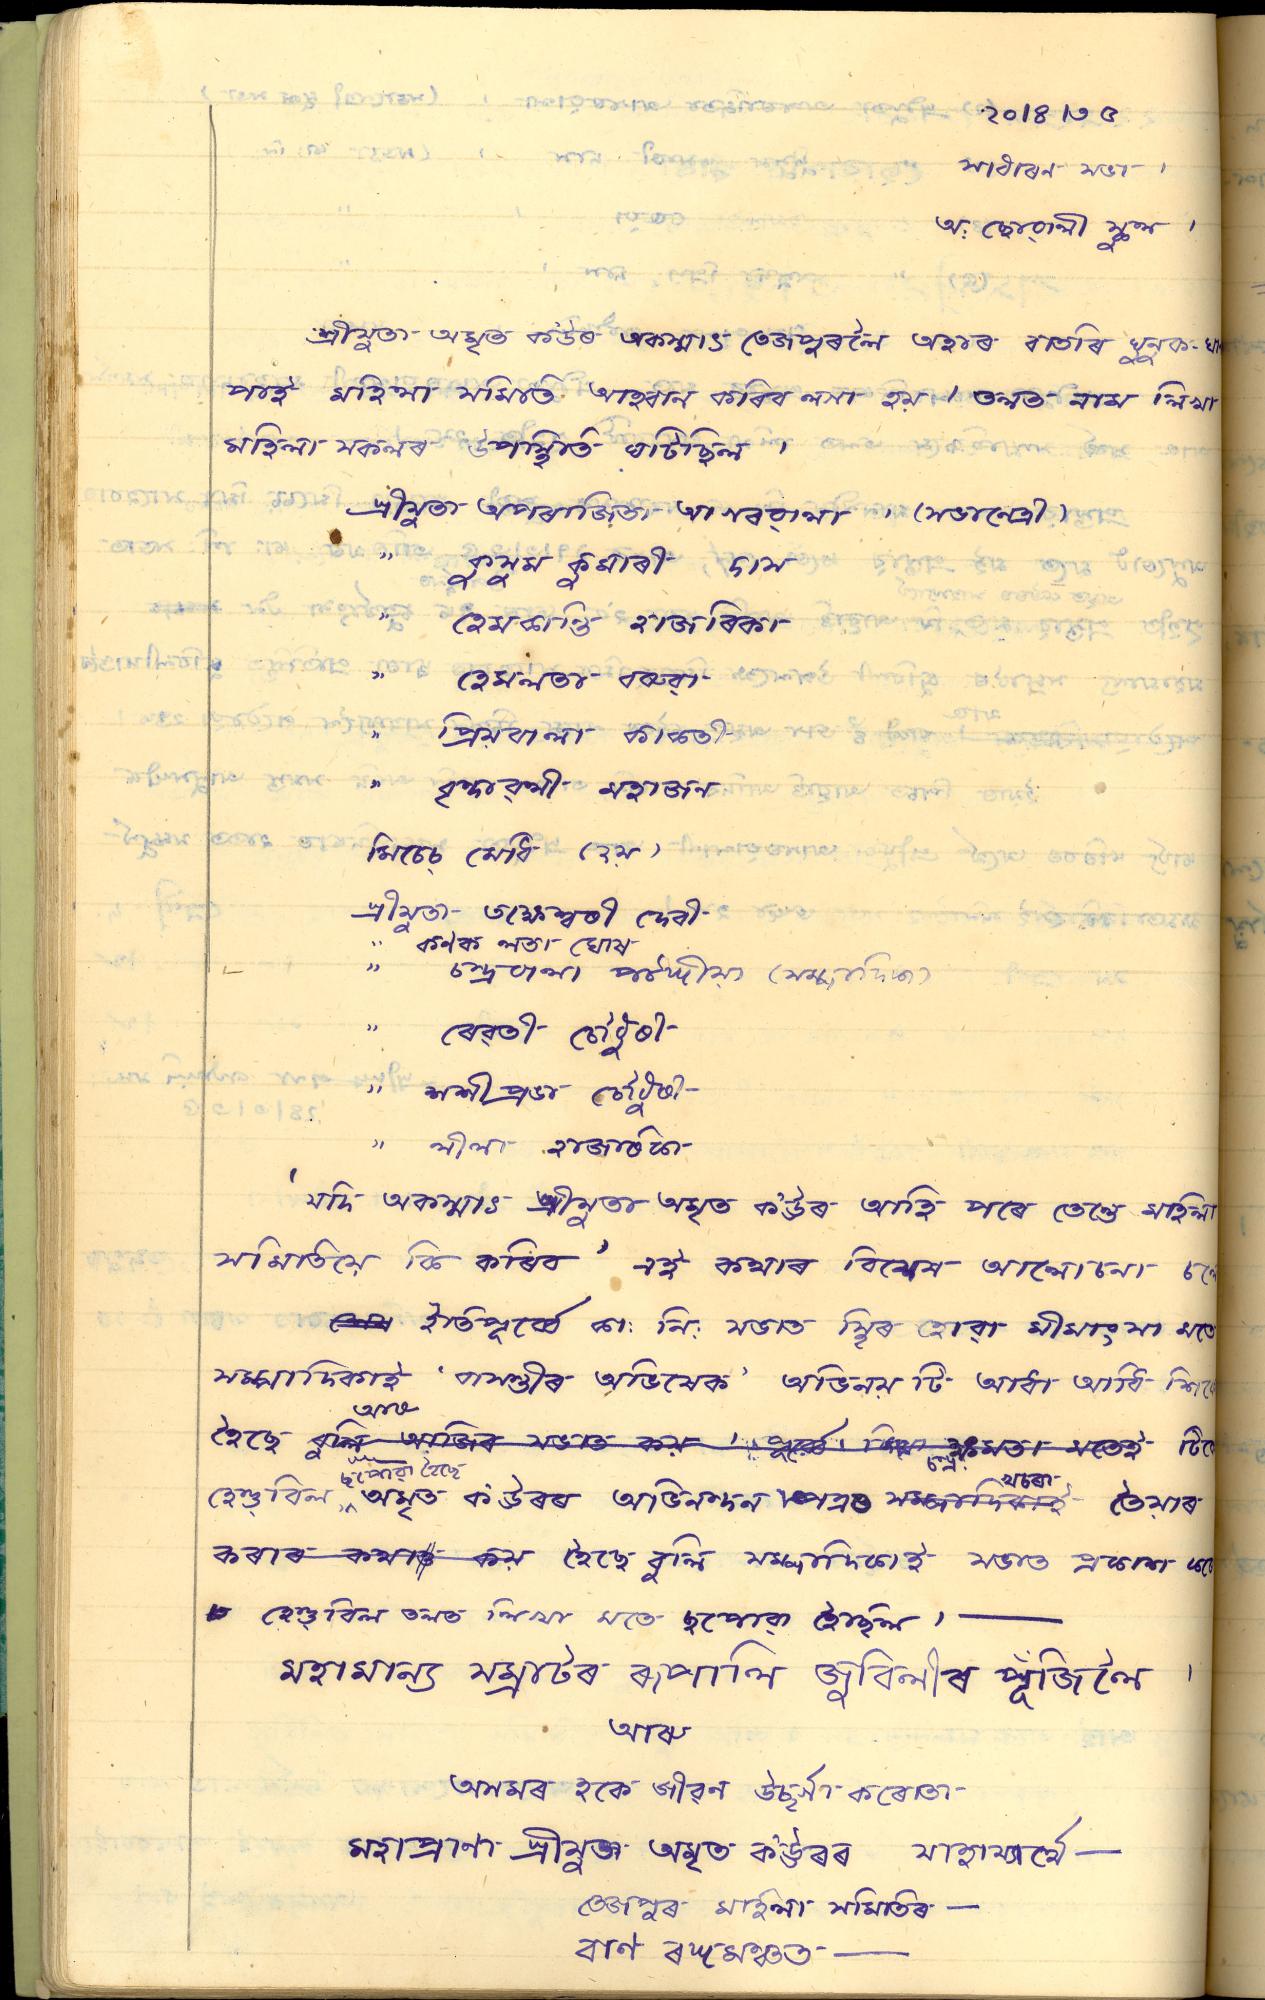 ২০।৪।৩৫
সাধাৰণ সভা ।
অ. ছোৱালী স্কুল ।
শ্ৰীযুতা অমৃত কঁউৰ অকস্মাৎ তেজপুৰলৈ অহাৰ বাতৰি খুনুক-
পাই মহিলা সমিতি আহ্বান কৰিব লগা হয় । তলত নাম লিখা
মহিলা সকলৰ উপস্থিতি ঘটিছিল ।
শ্ৰীযুতা অপৰাজিতা আগৰৱালা । (সভানেত্ৰী)
" কুসুম কুমাৰী দাস
" হেমকান্তি হাজৰিকা
" হেমলতা বৰুৱা
" প্ৰিয়বালা কাকতী
" বৃন্দাৱলী মহাজন
মিচেচ্ মেধি (হেম)
শ্ৰীযুতা তক্ষেশ্বৰী দেবী
" কণক লতা ঘোষ
" চন্দ্ৰবালা পাটগীয়া (সম্পাদিকা)
" ৰেৱতী চৌধুৰী
" শশীপ্ৰভা চৌধুৰী
" লীলা হাজৰিকা
'যদি অকস্মাৎ শ্ৰীযুতা অমৃত কঁউৰ আহি পৰে তেন্তে মহিলা
সমিতিয়ে কি কৰিব' এই কথাৰ বিশেষ আলোচনা চলে
ইতিপূৰ্ব্বে কা: নি: সভাত স্থিৰ হোৱা মীমাংসা মতে
সম্পাদিকাই 'বাসন্তীৰ অভিষেক' অভিনয় টি আধা আধি
আৰু
হৈছে বুলি আজিৰ সভাত কয় । পূৰ্ব্বে মতেই
ছপোৱা হৈছে চন্দ্ৰ: খচৰা
হেণ্ড্‌বিল অমৃত কঁউৰৰ অভিনন্দন পত্ৰৰ সম্পাদিকাই তৈয়াৰ
কৰাৰ কথাও কয় হৈছে বুলি সম্পাদিকাই সভাত প্ৰকাশ কৰে
হেণ্ড্‌বিল তলত লিখা মতে ছপোৱা হৈছিল । —
মহামান্য সম্ৰাটৰ ৰূপালি জুবিলীৰ পুঁজিলৈ ।
আৰু
অসমৰ হকে জীৱন উছৰ্গা কৰোতা
মহাপ্ৰাণা শ্ৰীযুক্তা অমৃত কঁউৰৰ সাহায্যাৰ্থে —
তেজপুৰ মহিলা সমিতিৰ —
বাণ ৰঙ্গমঞ্চত —